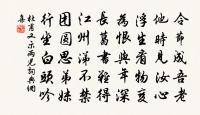 令節成吾老
他時見汝心
浮生看物變
為恨與年深
長葛書難得
江州涕不禁
團圓思弟妹
行坐白頭吟
杜甫又示兩兒詞典網
集